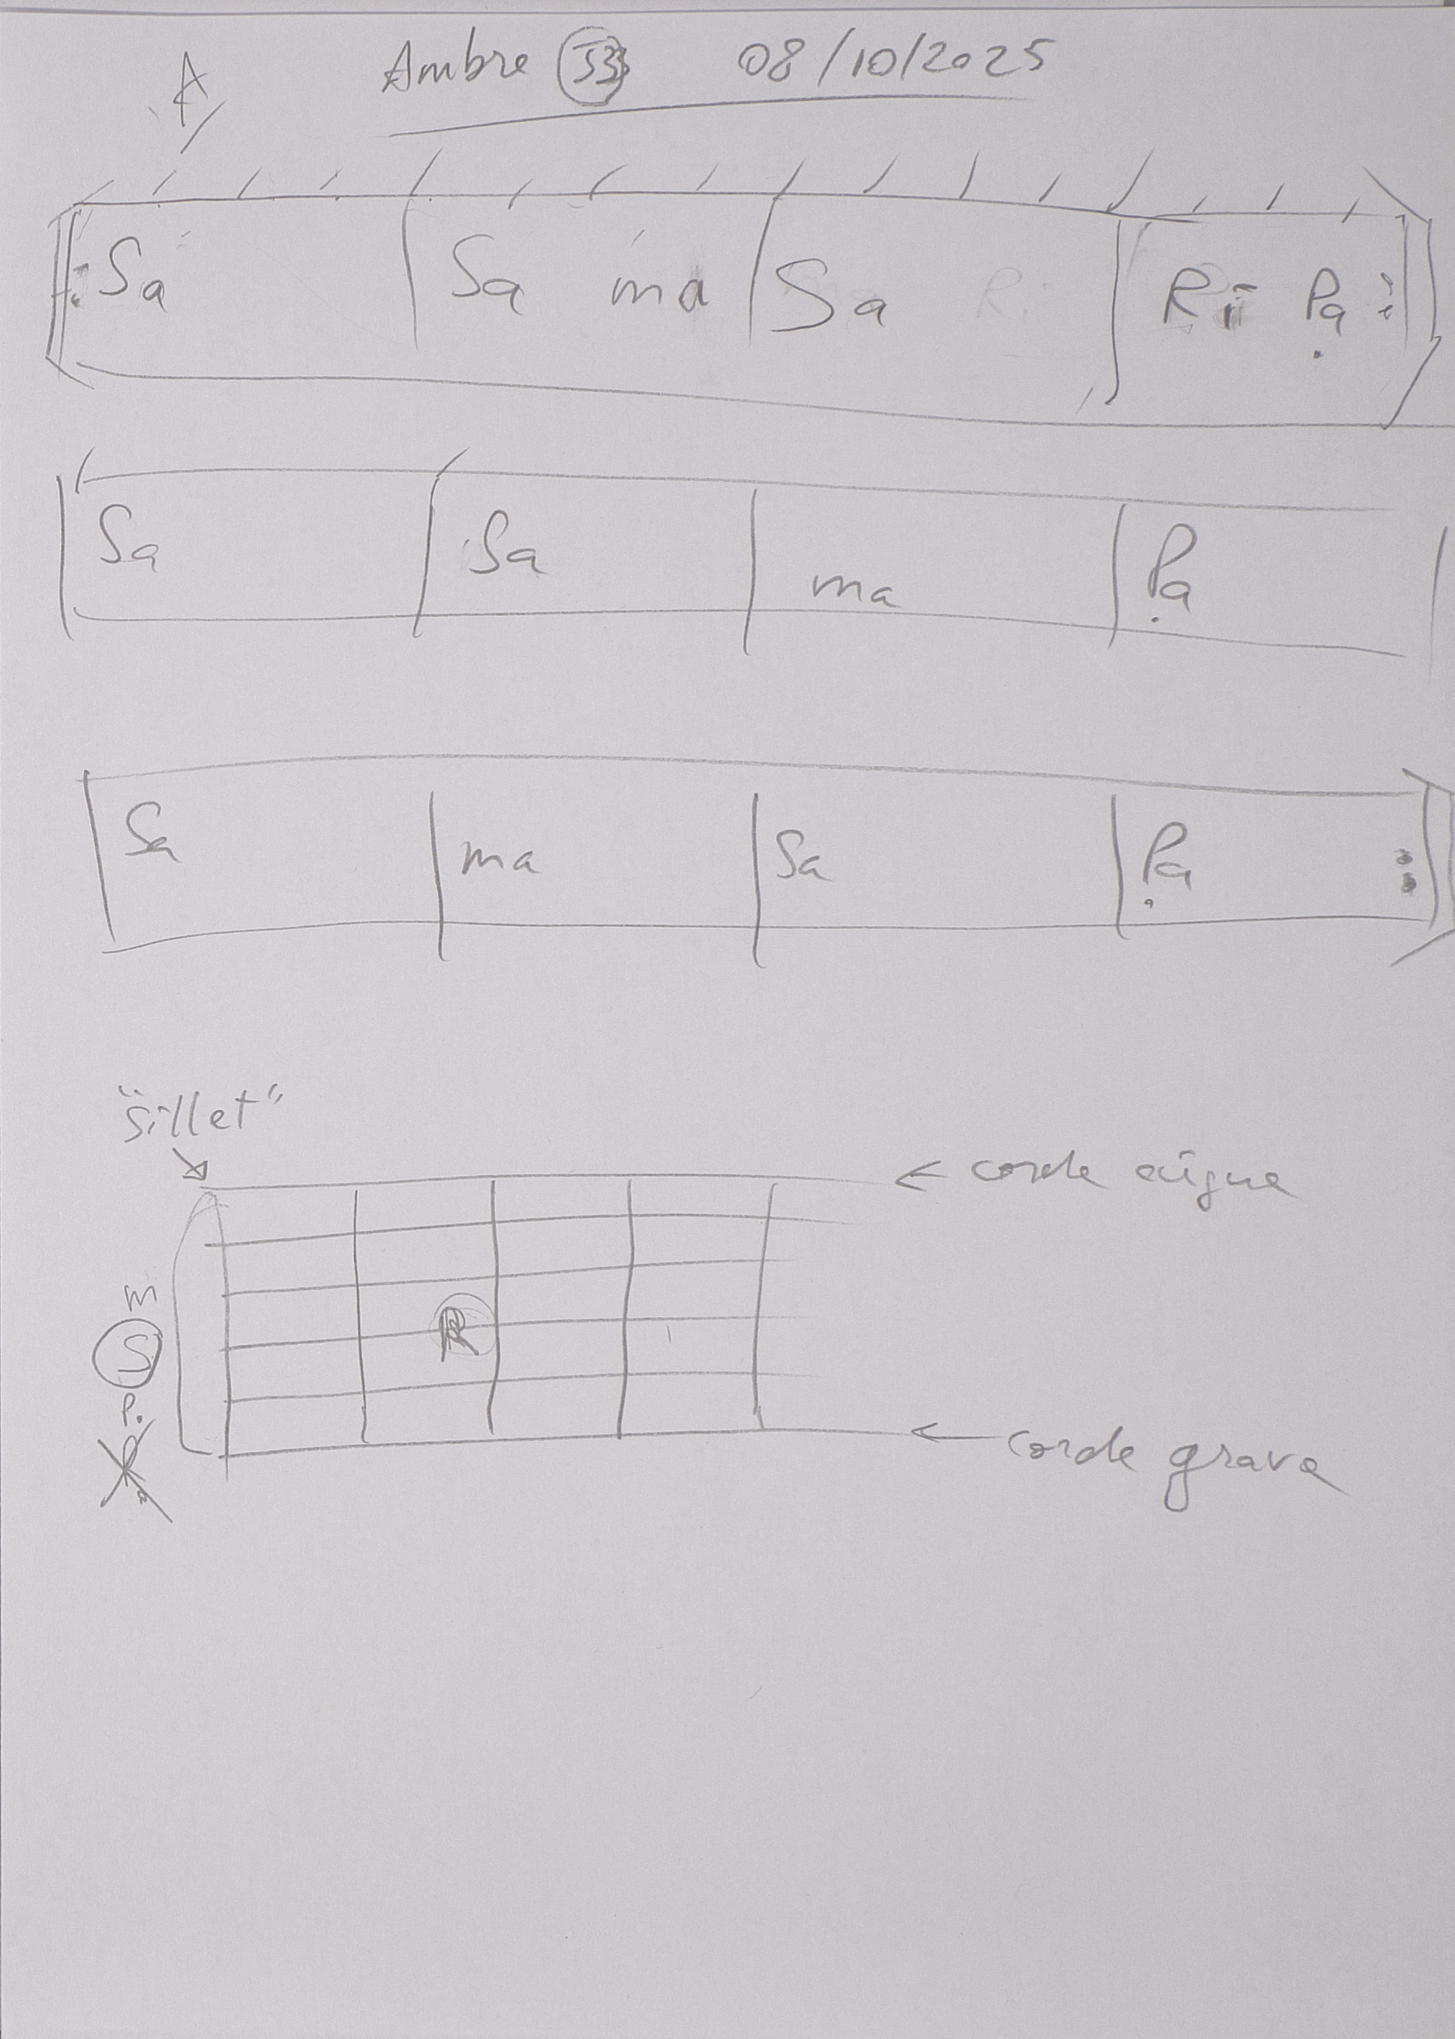 A Ambre 08/10/2025
Sa Sa ma Sa Ri Ri Pa
Sa Sa ma Pa
Sa ma Sa Pa
"Sillet"
← corde aigue
m
S R
P.
← corde grave